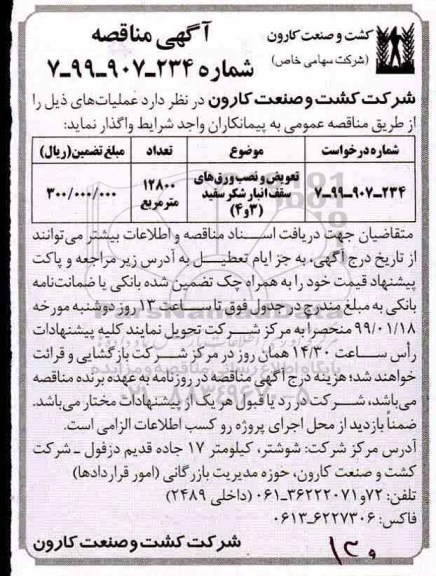 کشت و صنعت کارون
(شرکت سهامی خاص)
آگهی مناقصه
شماره ۲۳۴-۹۰۷-۹۹-۷
شرکت کشت و صنعت کارون در نظر دارد عملیات‌های ذیل را
از طریق مناقصه عمومی به پیمانکاران واجد شرایط واگذار نماید:
شماره درخواست موضوع تعداد مبلغ تضمین(ریال)
۲۳۴-۹۰۷-۹۹-۷ تعویض و نصب ورق‌های سقف انبار شکر سفید (۳و۴) ۱۲۸۰۰ مترمربع ۳۰۰/۰۰۰/۰۰۰
متقاضیان جهت دریافت اسناد مناقصه و اطلاعات بیشتر می‌توانند
از تاریخ درج آگهی، به جز ایام تعطیل به آدرس زیر مراجعه و پاکت
پیشنهاد قیمت خود را به همراه چک تضمین شده بانکی یا ضمانت‌نامه
بانکی به مبلغ مندرج در جدول فوق تا ساعت ۱۳ روز دوشنبه مورخه
۹۹/۰۱/۱۸ منحصراً به مرکز شرکت تحویل نمایند کلیه پیشنهادات
رأس ساعت ۱۴/۳۰ همان روز در مرکز شرکت بازگشایی و قرائت
خواهند شد؛ هزینه درج آگهی مناقصه در روزنامه به عهده برنده مناقصه
می‌باشد، شرکت در رد یا قبول هر یک از پیشنهادات مختار می‌باشد.
ضمناً بازدید از محل اجرای پروژه رو کسب اطلاعات الزامی است.
آدرس مرکز شرکت: شوشتر، کیلومتر ۱۷ جاده قدیم دزفول ـ شرکت
کشت و صنعت کارون، حوزه مدیریت بازرگانی (امور قراردادها)
تلفن: ۷۲و۳۶۲۲۲۰۷۱-۰۶۱ (داخلی ۲۴۸۹)
فاکس: ۰۶۱۳-۶۲۲۷۳۰۶
شرکت کشت و صنعت کارون